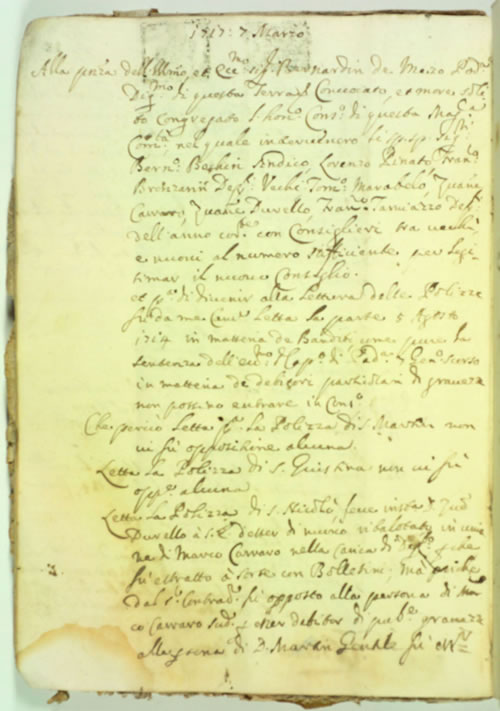 1717: 7 Marzo
Alla pnza dell Illmo et Ecc.mo sig. Bernardin de Mezo Pod.
Dig.mo di questa Terra Convocato, et more soli-
to Congregato l'hon. Cons.o di questa Mag.ca
Com.tà nel quale intervenero li sp. sp. Sig.
Bern.o Beshin Sindico, Lorenzo Penato Fran.o
Dep. Vechi Tom.o Marabelo, Zuane
Carraro, Zuane Durello, Fran.o Dep.
dell'anno con Consiglieri tra vechi,
e nuovi al numero sufficiente per legi-
timar il nuovo Consiglio.
et p.a di divenir alla lettura delle Polizze
fù da me Canc. Letta la parte 5 Agosto
1714 in materia de Banditi come pure la
sentenza dell'ecc.mo Cap.o di Pad.a 7 Gen.o scorso
in materia de debitori partidiani di gravezza
non possino entrare in Cons.o
Che perciò Letta p.a La Polizza di S. Martin non
vi fù oppositione alcuna.
Letta La Polizza di S. Giustina non vi fù
opp.e alcuna
Letta La Polizza di S. Nicolò, fece insta Zuane
Durello à S.E. d'esser di nuovo ribalotato in
di Marco Carraro nella carica di che
fù estratto à sorte con Bolletini, Mà poiche
dal fù opposto alla persona di Mar-
co Carraro sud.o esser debitor di pub. gravezze
alla di D. Martin Gentile fù